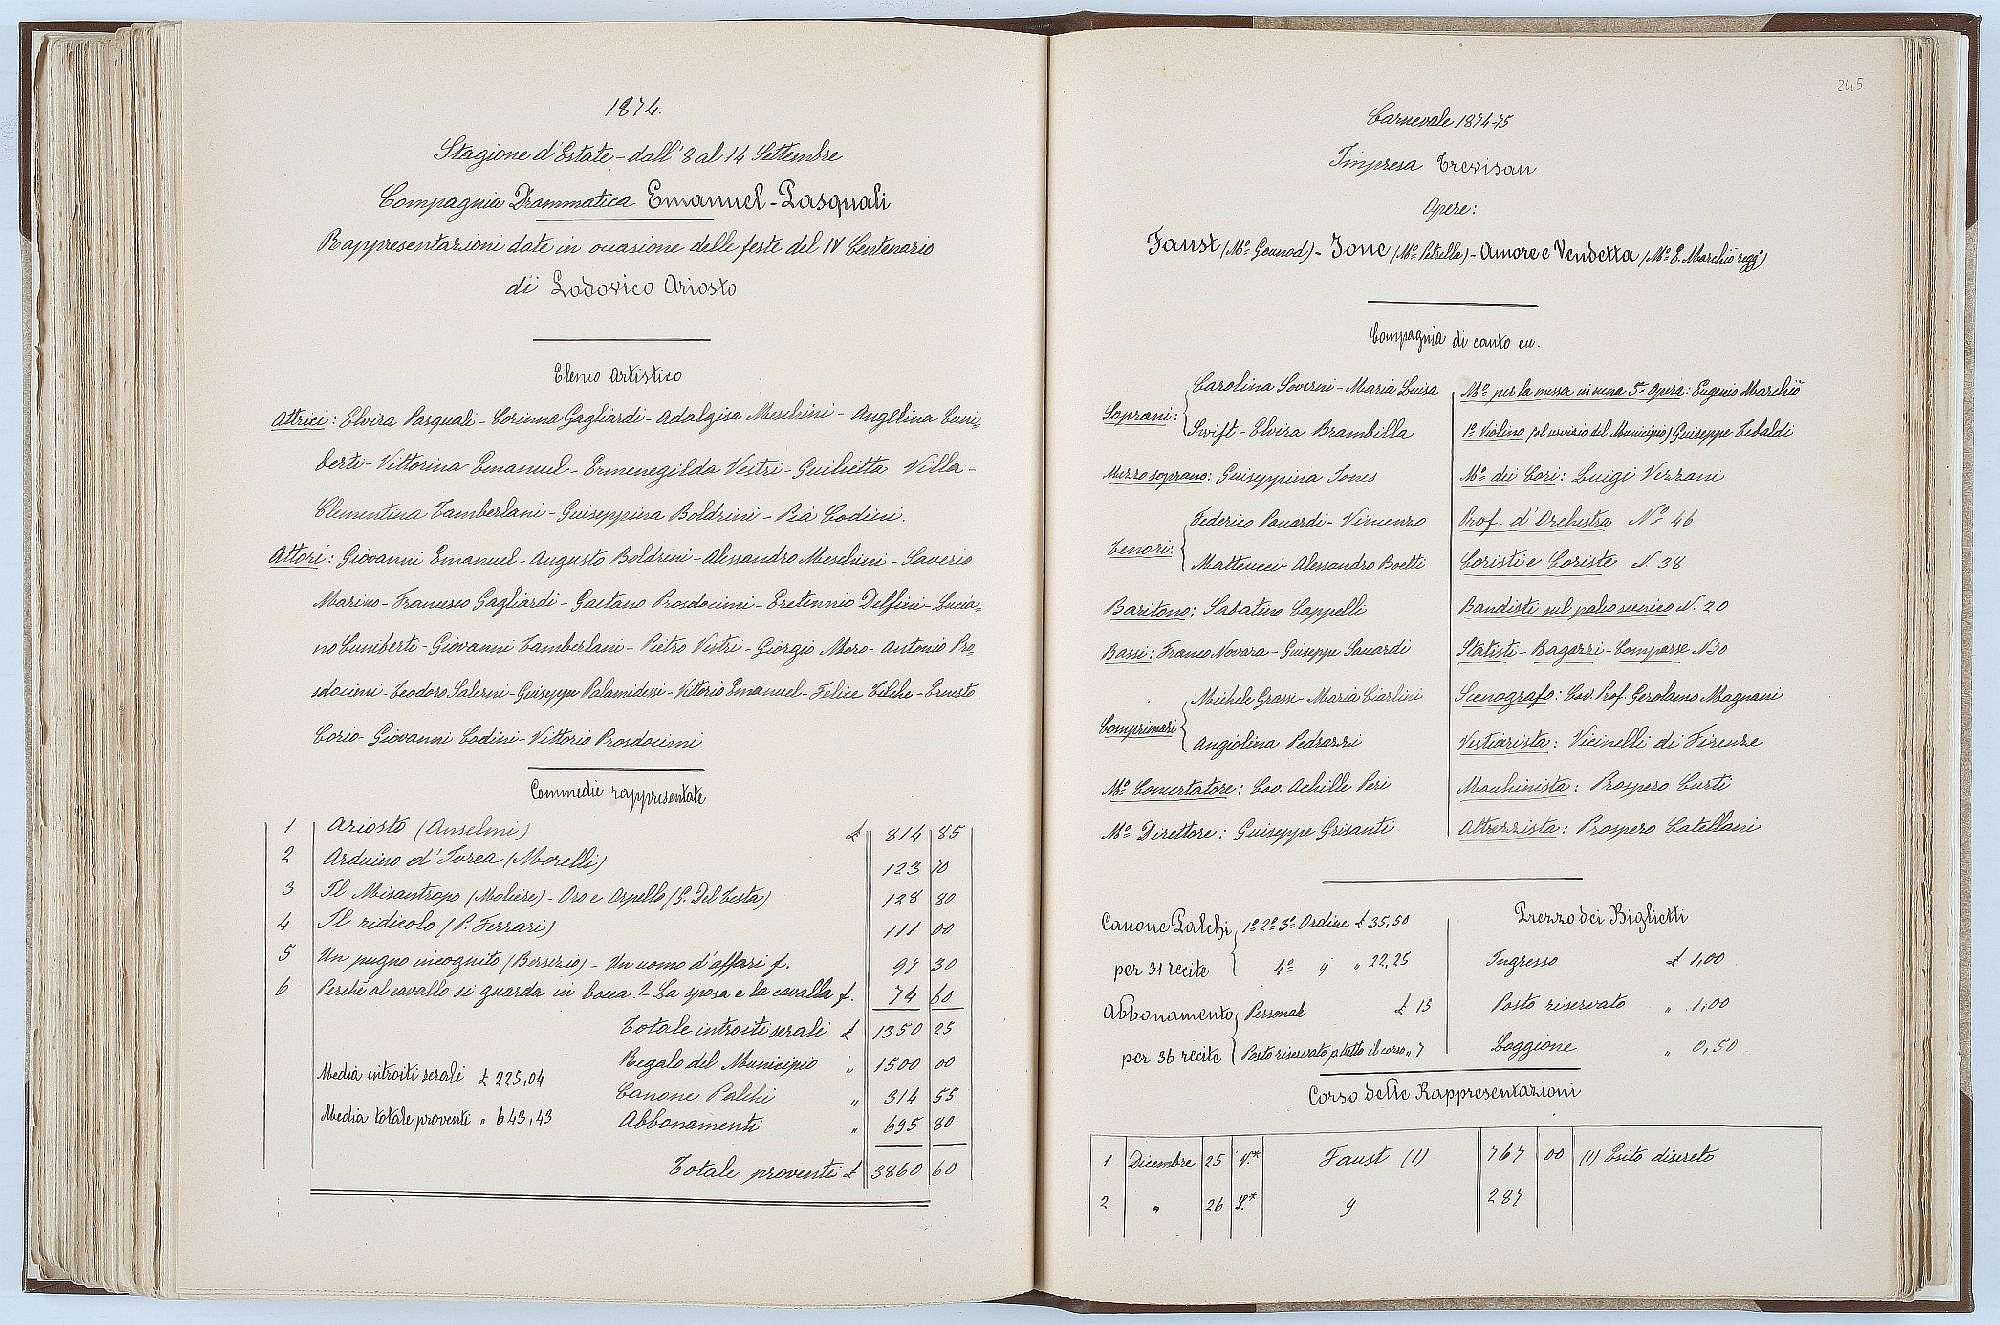 1874.
Stagione d'Estate - dall' 8 al 14 Settembre
Compagnia Drammatica Emanuel - Pasquali
Rappresentazioni date in occasione delle feste del IV Centenario
di Lodovico Ariosto
Elenco Artistico
Attrici: Elvira Pasquali - Corinna Gagliardi - Adalgisa Meschini - Angelina Cuni-
berti - Vittorina Emanuel - Ermenegilda Vestri - Giulietta Villa -
Clementina Tamberlani - Giuseppina Boldrini - Pia Codini.
Attori: Giovanni Emanuel - Augusto Boldrini - Alessandro Meschini - Saverio
Marino - Francesco Gagliardi - Gaetano Prosdocimi - Eretennio Delfini - Lucia-
no Cuniberti - Giovanni Tamberlani - Pietro Vestri - Giorgio Moro - Antonio Pro-
sdocimi - Teodoro Salerni - Giuseppe Palamidessi - Vittorio Emanuel - Felice - Ernesto
Corio - Giovanni Codini - Vittorio Prosdocimi
Commedie rappresentate
1 Ariosto (Anselmi) £ 814 85
2 Arduino d'Ivrea (Morelli) 123 10
3 Il Misantropo (Molière) - Oro e Orpello (G. Del Testa) 128 80
4 Il ridicolo (P. Ferrari) 111 00
5 Un pugno incognito (Bersezio) - Un uomo d'affari f. 97 30
6 Perchè al cavallo si guarda in bocca? - La sposa e la cavalla f. 74 60
Totale introiti serali £ 1350 25
Regalo del Municipio " 1500 00
Media introiti serali £ 225,04
Canone Palchi " 314 55
Media totale proventi " 643,43
Abbonamenti " 695 80
Totale proventi £ 3860 60
245
Carnevale 1874-75
Impresa Trevisan
Opere:
Faust (Mo. Gounod) - Jone (Mo. Petrella) - Amore e Vendetta (Mo. E. Marchiò regg.)
Compagnia di canto ec.
Soprani: Carolina Soverni - Maria Luisa
Swift - Elvira Brambilla
Mezzo soprano: Giuseppina Jones
Tenori: Federico Pavardi - Vincenzo
Matteucci - Alessandro Boetti
Baritono: Sabatino Cappelli
Bassi: Franco Novara - Giuseppe Savardi
Comprimari Michele Grassi - Maria Ciarlini
Angiolina Pedrazzi
Mo. Concertatore: Cav. Achille Peri
Mo. Direttore: Giuseppe Grisanti
Mo. per la messa in scena 3a. Opera: Eugenio Marchiò
1o. Violino (al servizio del Municipio) Giuseppe Tebaldi
Mo. dei Cori: Luigi Vezzani
Prof. d'Orchestra No. 46
Coristi e Coriste N. 38
Bandisti sul palco scenico N. 20
Statisti - Ragazzi - Comparse N 30
Scenografo: Cav. Prof. Gerolamo Magnani
Vestiarista: Vicinelli di Firenze
Macchinista: Prospero Curti
Attrezzista: Prospero Catellani
Canone Palchi 1o. 2o. 3o. Ordine £ 35,50
per 31 recite 4o. " " 22,25
Abbonamento Personale £ 13
per 36 recite Posto riservato p. tutto il corso " 7
Prezzo dei Biglietti
Ingresso £ 1,00
Posto riservato " 1,00
Loggione " 0,50
Corso delle Rappresentazioni
1 Dicembre 25 V.* Faust (1) 767 00 (1) Esito discreto
2 " 26 S.* " 287